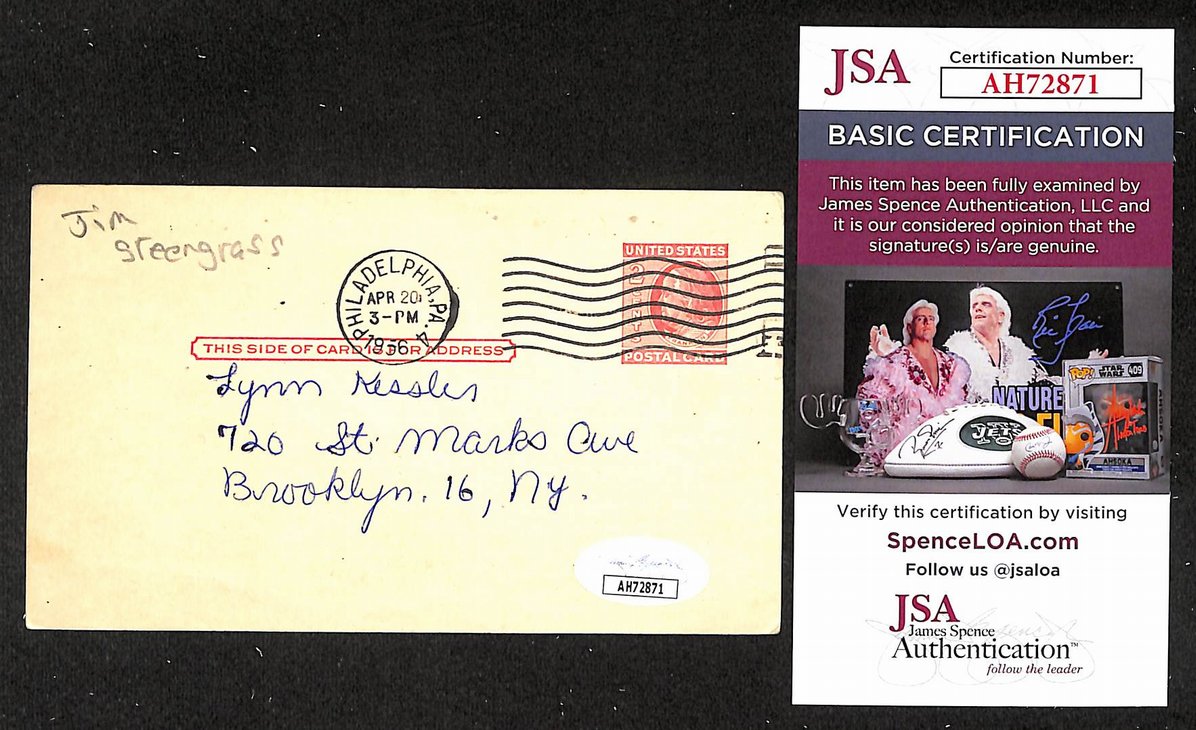 Jim
greengrass
PHILADELPHIA, PA. 4
APR 20
3-PM
1956
UNITED STATES
2 CENTS
POSTAL CARD
THIS SIDE OF CARD IS FOR ADDRESS
Lynn Kessler
720 St. Marks Ave
Brooklyn. 16, Ny.
AH72871
JSA
Certification Number:
AH72871
BASIC CERTIFICATION
This item has been fully examined by
James Spence Authentication, LLC and
it is our considered opinion that the
signature(s) is/are genuine.
NATURE
JETS
POP!
STAR
WARS
409
AHSOKA
Verify this certification by visiting
SpenceLOA.com
Follow us @jsaloa
JSA
James Spence
Authentication™
follow the leader